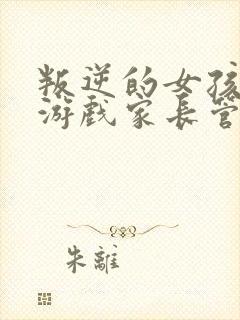 叛逆的女孩
游戏家长管
朱離